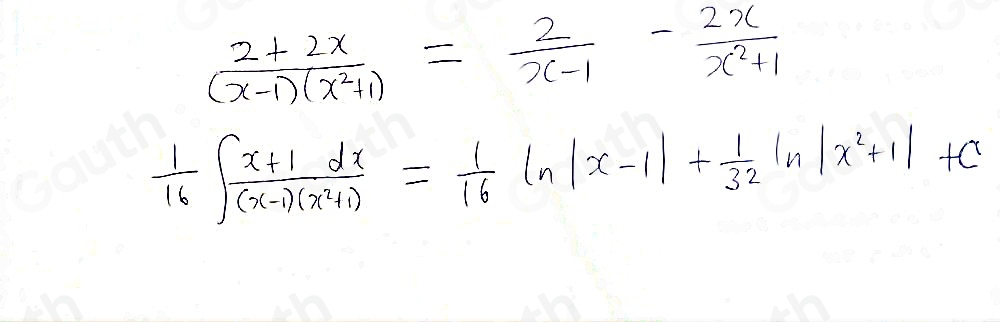 \frac{2+2x}{(x-1)(x^2+1)} = \frac{2}{x-1} - \frac{2x}{x^2+1}
\frac{1}{16} \int \frac{x+1 \, dx}{(x-1)(x^2+1)} = \frac{1}{16} \ln|x-1| + \frac{1}{32} \ln|x^2+1| + C